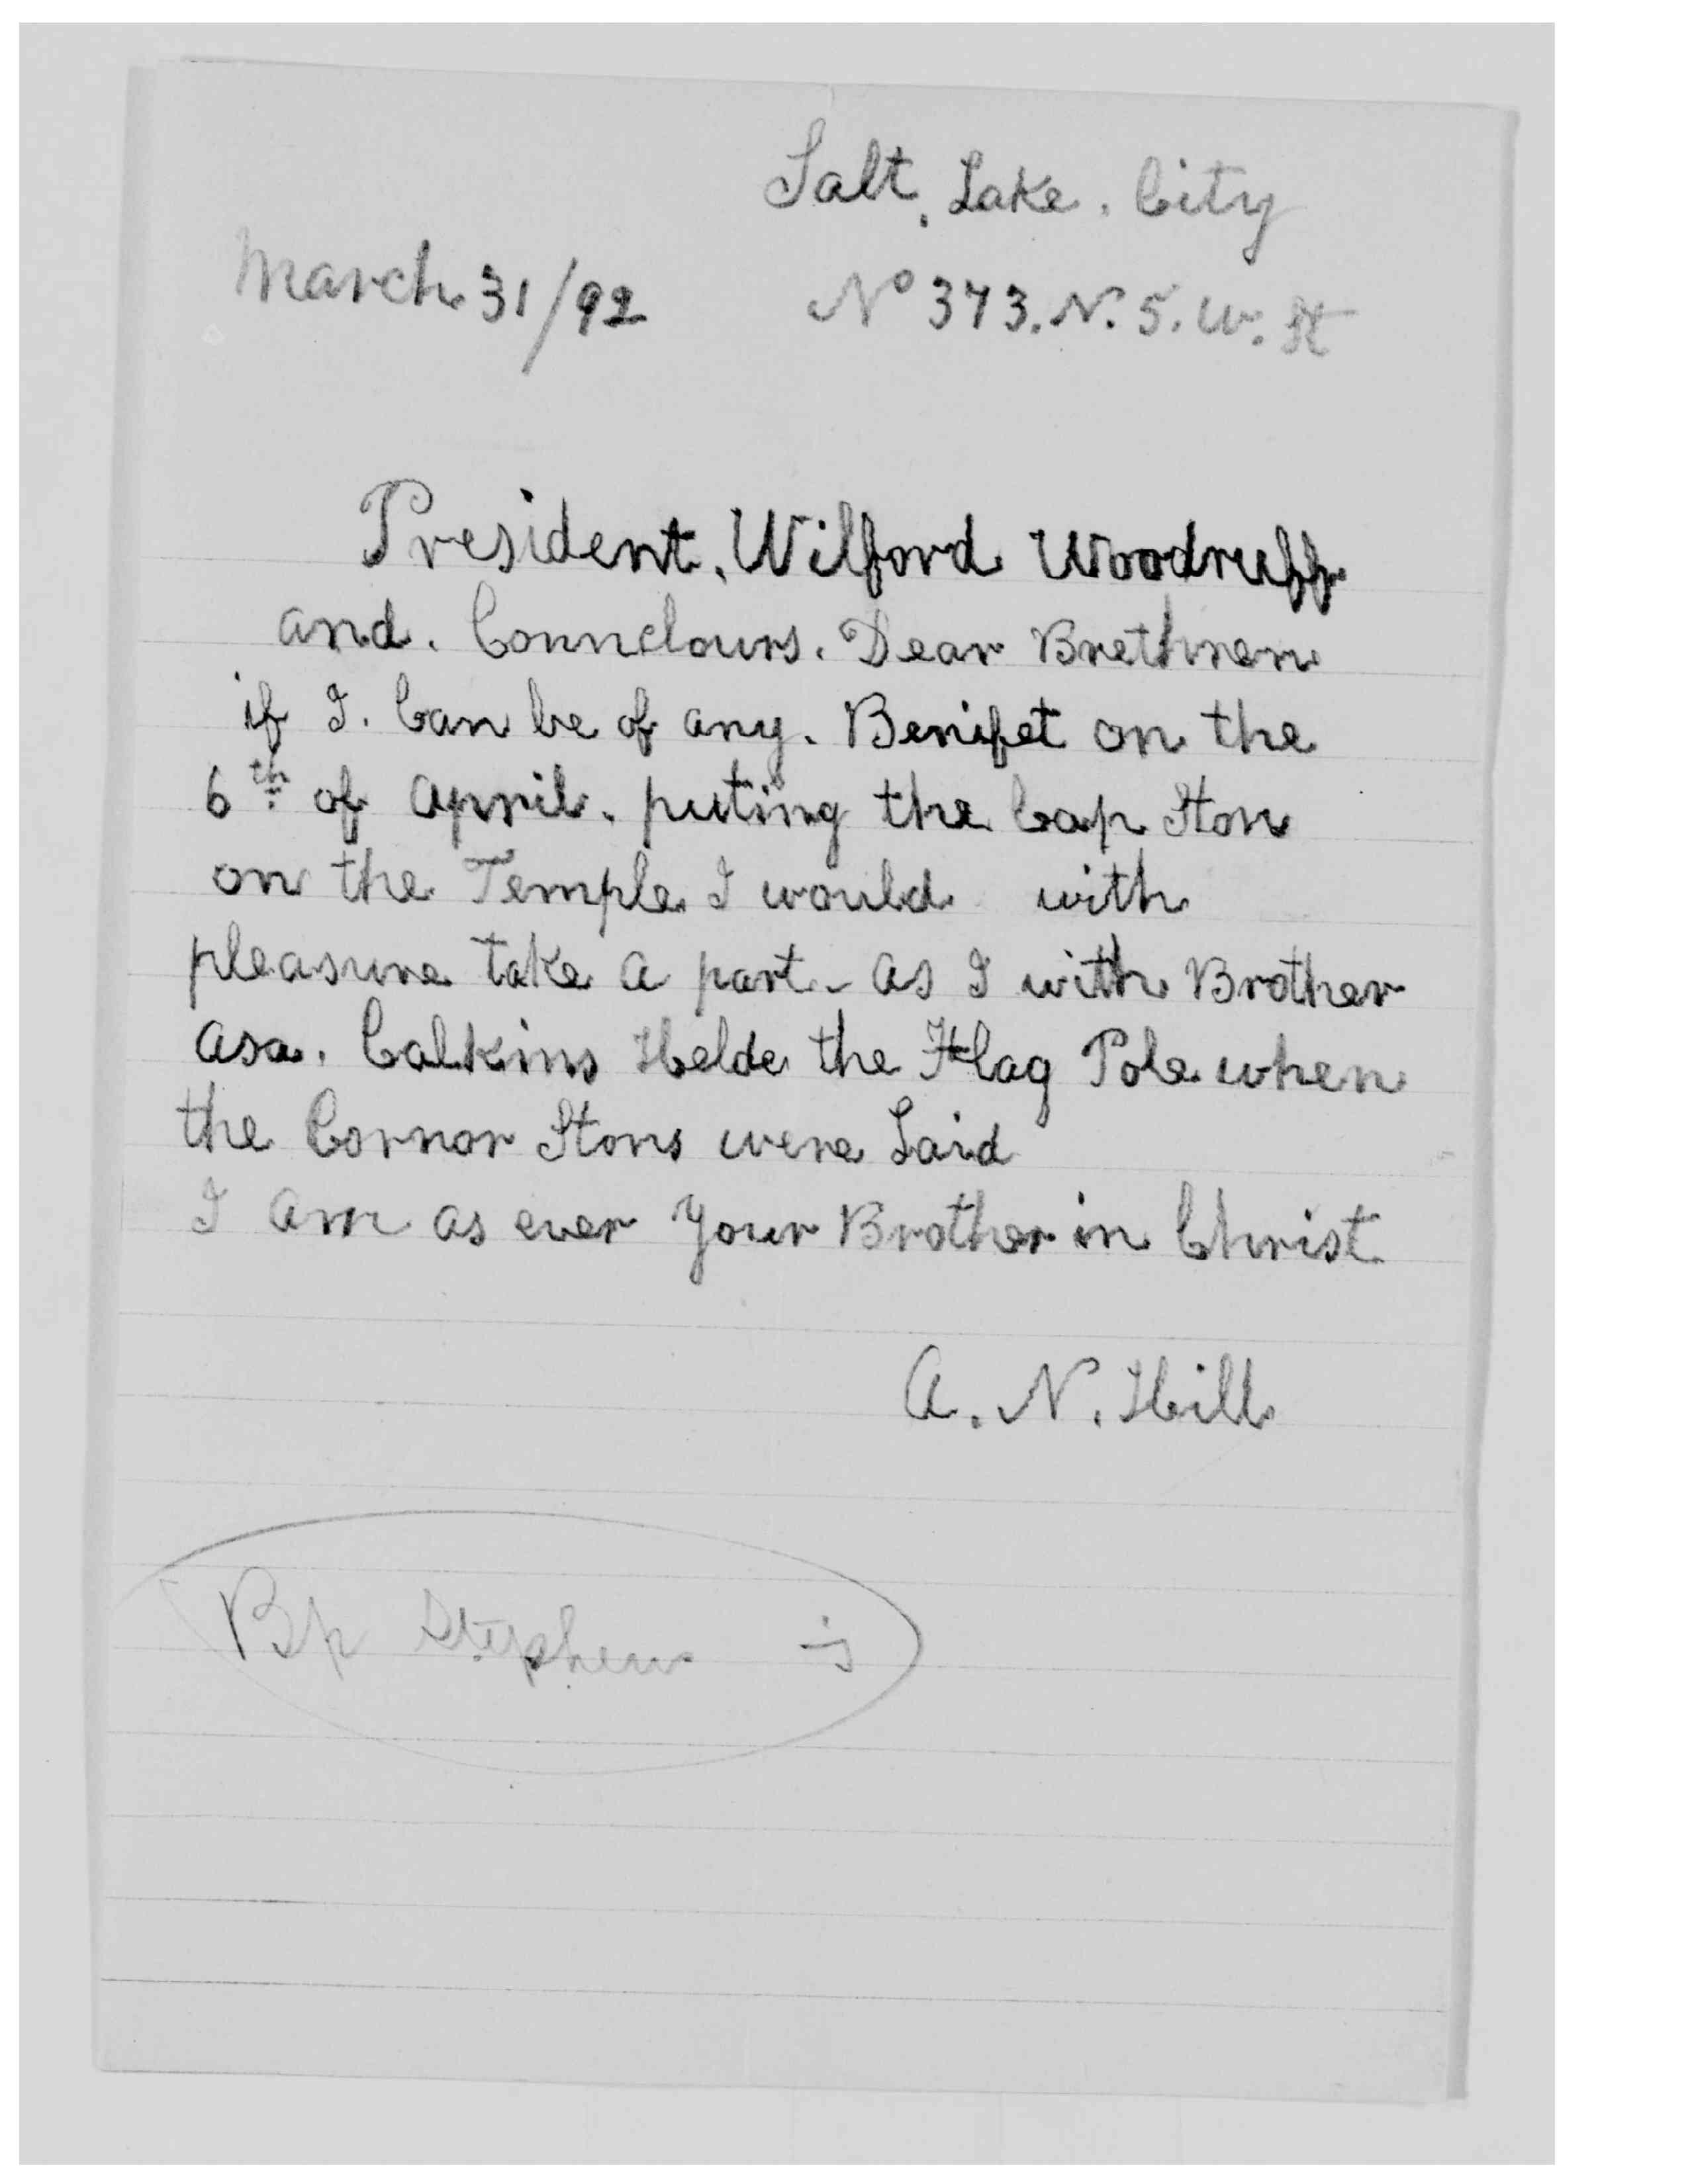 Salt. Lake. City
March 31/92 No 373. N. 5. W. St
President. Wilford Woodruff
and. Counclours. Dear Brethren
if I. Can be of any. Benifet on the
6th of April. puting the Cap Ston
on the Temple I would with
pleasure take a part - as I with Brother
Asa. Calkins Helde the Flag Pole when
the Cornor Stons were Laid
I am as ever your Brother in Christ
A. N. Hill
Bp Stephens